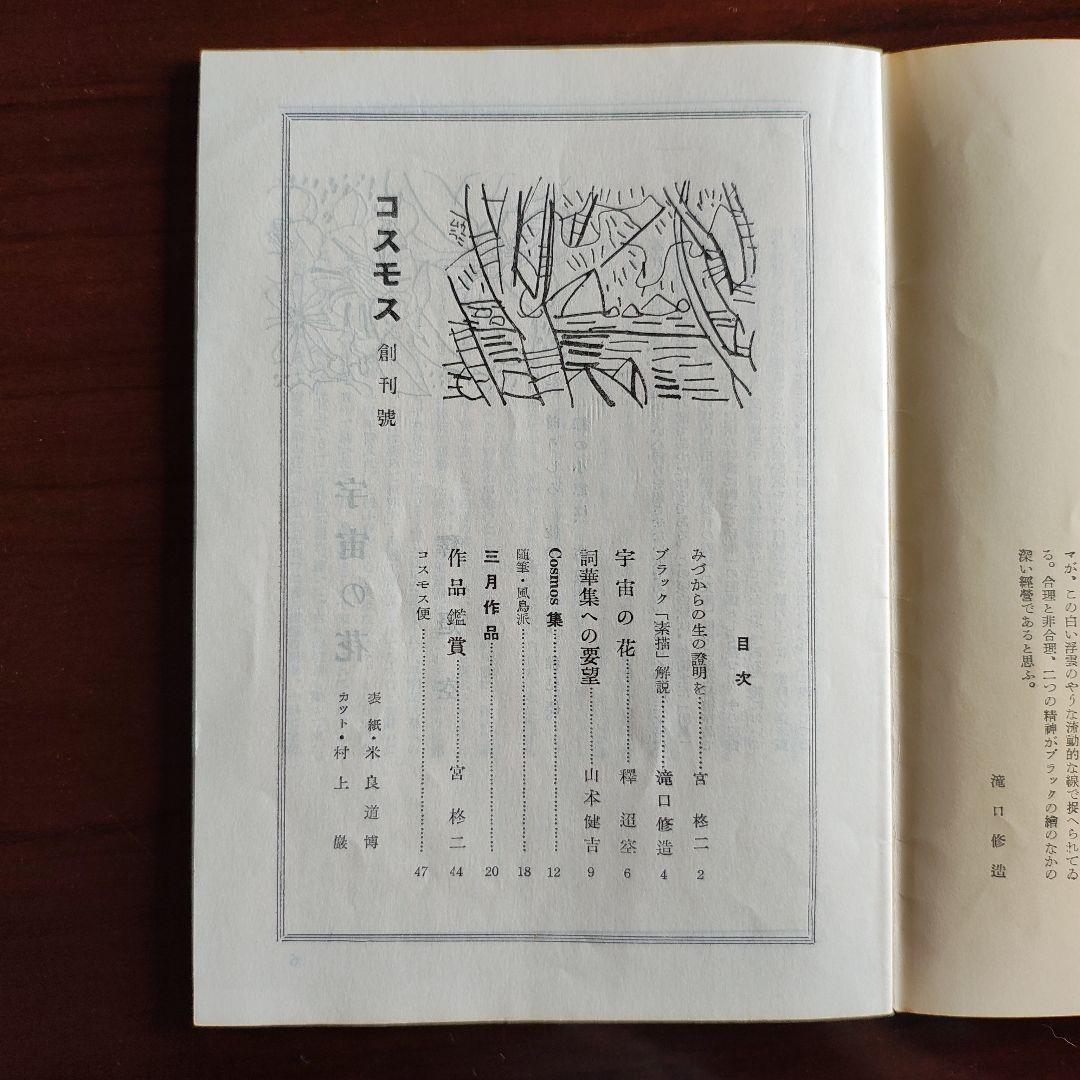 マが、この白い浮雲のやうな流動的な線で捉へられてゐ
る。合理と非合理、二つの精神がブラックの繪のなかの
深い經營であると思ふ。
滝口修造
目次
みづからの生の證明を…………宮柊二 2
ブラック「素描」解説…………滝口修造 4
宇宙の花…………釋迢空 6
詞華集への要望…………山本健吉 9
Cosmos集…………12
随筆・風鳥派…………18
三月作品…………20
作品鑑賞…………宮柊二 44
コスモス便…………47
コスモス 創刊號
表紙・米良道博
カット・村上巖